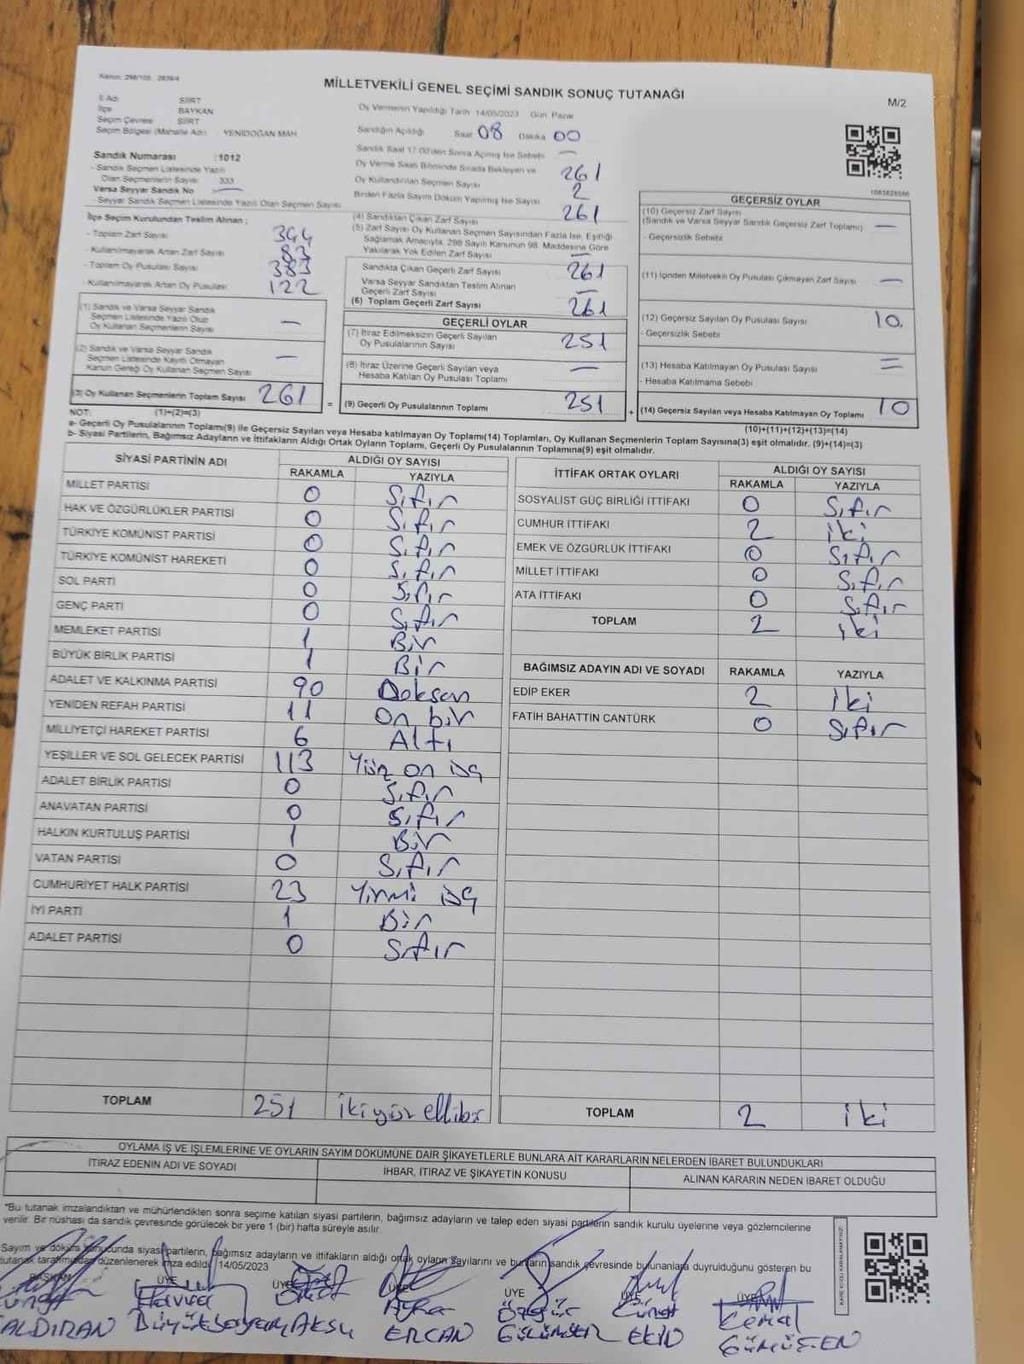 Kanun: 298/105 2839/4
MİLLETVEKİLİ GENEL SEÇİMİ SANDIK SONUÇ TUTANAĞI
M/2
İl Adı SİİRT
İlçe BAYKAN
Seçim Çevresi SİİRT
Seçim Bölgesi (Mahalle Adı) YENİDOĞAN MAH
Sandık Numarası : 1012
- Sandık Seçmen Listesinde Yazılı
Olan Seçmenlerin Sayısı 333
Varsa Seyyar Sandık No —
- Seyyar Sandık Seçmen Listesinde Yazılı Olan Seçmen Sayısı
İlçe Seçim Kurulundan Teslim Alınan :
- Toplam Zarf Sayısı 344
- Kullanılmayarak Artan Zarf Sayısı 83
- Toplam Oy Pusulası Sayısı 383
- Kullanılmayarak Artan Oy Pusulası 122
(1) Sandık ve Varsa Seyyar Sandık
Seçmen Listesinde Yazılı Olup
Oy Kullanan Seçmenlerin Sayısı —
(2) Sandık ve Varsa Seyyar Sandık
Seçmen Listesinde Kayıtlı Olmayan
Kanun Gereği Oy Kullanan Seçmen Sayısı —
(3) Oy Kullanan Seçmenlerin Toplam Sayısı 261
Oy Vermenin Yapıldığı Tarih 14/05/2023 Gün Pazar
Sandığın Açıldığı Saat 08 Dakika 00
Sandık Saat 17.00'den Sonra Açılmış İse Sebebi —
Oy Verme Saati Bitiminde Sırada Bekleyen ve
Oy Kullandırılan Seçmen Sayısı 261
Birden Fazla Sayım Döküm Yapılmış İse Sayısı 2
(4) Sandıktan Çıkan Zarf Sayısı 261
(5) Zarf Sayısı Oy Kullanan Seçmen Sayısından Fazla İse, Eşitliği
Sağlamak Amacıyla, 298 Sayılı Kanunun 98. Maddesine Göre
Yakılarak Yok Edilen Zarf Sayısı —
Sandıkta Çıkan Geçerli Zarf Sayısı 261
Varsa Seyyar Sandıktan Teslim Alınan
Geçerli Zarf Sayısı —
(6) Toplam Geçerli Zarf Sayısı 261
GEÇERLİ OYLAR
(7) İtiraz Edilmeksizin Geçerli Sayılan
Oy Pusulalarının Sayısı 251
(8) İtiraz Üzerine Geçerli Sayılan veya
Hesaba Katılan Oy Pusulası Toplamı —
= (9) Geçerli Oy Pusulalarının Toplamı 251
1083828586
GEÇERSİZ OYLAR
(10) Geçersiz Zarf Sayısı
(Sandık ve Varsa Seyyar Sandık Geçersiz Zarf Toplamı) —
- Geçersizlik Sebebi
(11) İçinden Milletvekili Oy Pusulası Çıkmayan Zarf Sayısı —
(12) Geçersiz Sayılan Oy Pusulası Sayısı 10.
- Geçersizlik Sebebi
(13) Hesaba Katılmayan Oy Pusulası Sayısı =
- Hesaba Katılmama Sebebi
+ (14) Geçersiz Sayılan veya Hesaba Katılmayan Oy Toplamı 10
NOT: (1)+(2)=(3) (10)+(11)+(12)+(13)=(14)
a- Geçerli Oy Pusulalarının Toplamı(9) ile Geçersiz Sayılan veya Hesaba katılmayan Oy Toplamı(14) Toplamları, Oy Kullanan Seçmenlerin Toplam Sayısına(3) eşit olmalıdır. (9)+(14)=(3)
b- Siyasi Partilerin, Bağımsız Adayların ve İttifakların Aldığı Ortak Oyların Toplamı, Geçerli Oy Pusulalarının Toplamına(9) eşit olmalıdır.
SİYASİ PARTİNİN ADI ALDIĞI OY SAYISI
RAKAMLA YAZIYLA
MİLLET PARTİSİ 0 Sıfır
HAK VE ÖZGÜRLÜKLER PARTİSİ 0 Sıfır
TÜRKİYE KOMÜNİST PARTİSİ 0 Sıfır
TÜRKİYE KOMÜNİST HAREKETİ 0 Sıfır
SOL PARTİ 0 Sıfır
GENÇ PARTİ 0 Sıfır
MEMLEKET PARTİSİ 1 Bir
BÜYÜK BİRLİK PARTİSİ 1 Bir
ADALET VE KALKINMA PARTİSİ 90 Doksan
YENİDEN REFAH PARTİSİ 11 On bir
MİLLİYETÇİ HAREKET PARTİSİ 6 Altı
YEŞİLLER VE SOL GELECEK PARTİSİ 113 Yüz on üç
ADALET BİRLİK PARTİSİ 0 Sıfır
ANAVATAN PARTİSİ 0 Sıfır
HALKIN KURTULUŞ PARTİSİ 1 Bir
VATAN PARTİSİ 0 Sıfır
CUMHURİYET HALK PARTİSİ 23 Yirmi üç
İYİ PARTİ 1 Bir
ADALET PARTİSİ 0 Sıfır
TOPLAM 251 iki yüz ellibir
İTTİFAK ORTAK OYLARI ALDIĞI OY SAYISI
RAKAMLA YAZIYLA
SOSYALİST GÜÇ BİRLİĞİ İTTİFAKI 0 Sıfır
CUMHUR İTTİFAKI 2 iki
EMEK VE ÖZGÜRLÜK İTTİFAKI 0 Sıfır
MİLLET İTTİFAKI 0 Sıfır
ATA İTTİFAKI 0 Sıfır
TOPLAM 2 iki
BAĞIMSIZ ADAYIN ADI VE SOYADI RAKAMLA YAZIYLA
EDİP EKER 2 iki
FATİH BAHATTİN CANTÜRK 0 Sıfır
TOPLAM 2 iki
OYLAMA İŞ VE İŞLEMLERİNE VE OYLARIN SAYIM DÖKÜMÜNE DAİR ŞİKAYETLERLE BUNLARA AİT KARARLARIN NELERDEN İBARET BULUNDUKLARI
İTİRAZ EDENİN ADI VE SOYADI İHBAR, İTİRAZ VE ŞİKAYETİN KONUSU ALINAN KARARIN NEDEN İBARET OLDUĞU
*Bu tutanak imzalandıktan ve mühürlendikten sonra seçime katılan siyasi partilerin, bağımsız adayların ve talep eden siyasi partilerin sandık kurulu üyelerine veya gözlemcilerine
verilir. Bir nüshası da sandık çevresinde görülecek bir yere 1 (bir) hafta süreyle asılır.
Sayım ve döküm sonucunda siyasi partilerin, bağımsız adayların ve ittifakların aldığı ortak oyların sayılarını ve bunların sandık çevresinde bulunanlara duyrulduğunu gösteren bu
tutanak tarafımızdan düzenlenerek imza edildi. 14/05/2023
BAŞKAN ÜYE ÜYE ÜYE ÜYE ÜYE
Cüneyt Kemal
ALDIRAN AKSU ERCAN EKİN GÜMÜŞEN